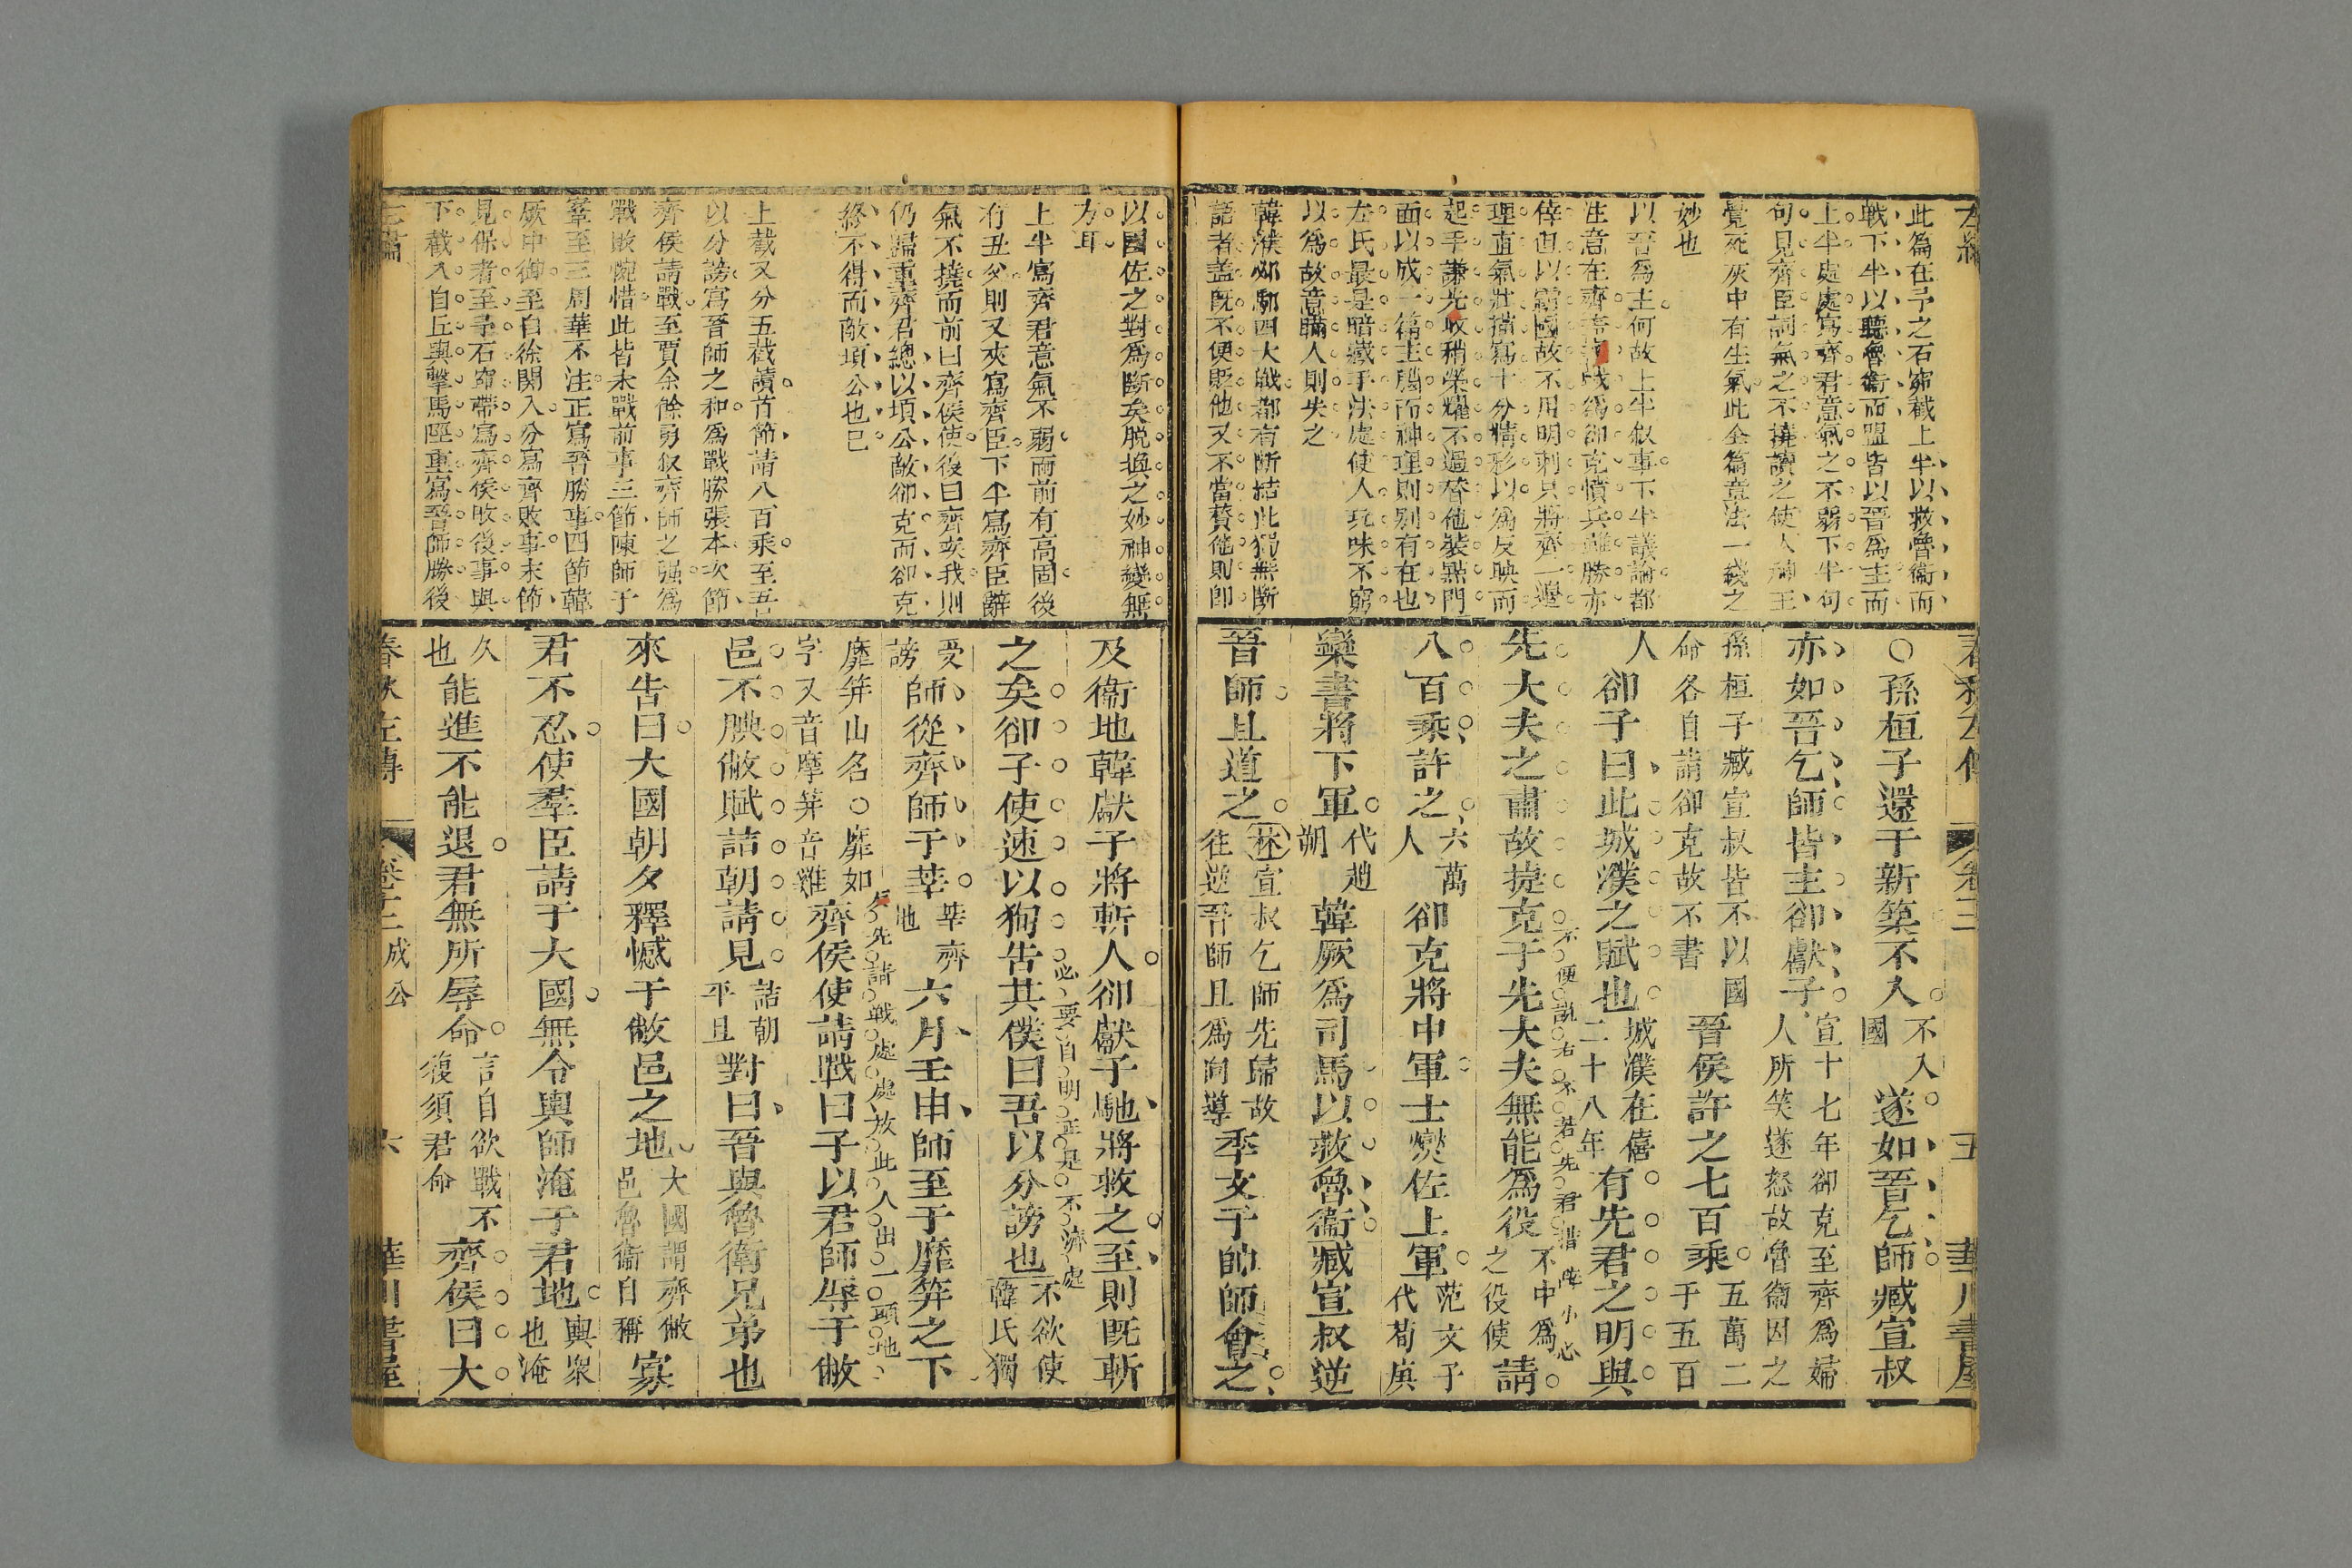 此為在予之石窌截上半以救魯衞而
戰下半以聽魯衞而盟皆以晉為主而
上半處處寫齊君意氣之不弱下半句
句見齊臣詞氣之不撓讀之使人神王
覺死灰中有生氣此全篇章法一綫之
妙也
以晉為主何故上半敘事下半議論都
生意在齊
戰為郤克憤兵雖勝亦
倖但以霸國故不用明刺只將齊一邊
理直氣壯描寫十分精彩以為反映而
起手謙光收稍榮耀不過替他裝點門
面以成一篇主腦而神理則別有在也
左氏最是暗藏手法處使人玩味不窮
以為故意瞞人則失之
韓濮邲鄢四大戰都有斷結此獨無斷
語者蓋既不便貶他又不當贊他則即
○孫桓子還于新築不入
不入國
遂如晉乞師臧宣叔
亦如晉乞師皆主郤獻子
宣十七年郤克至齊為婦
人所笑遂怒故魯衞因之
孫桓子臧宣叔皆不以國
命各自詣郤克故不書
晉侯許之七百乘
五萬二
千五百
人
郤子曰此城濮之賦也
城濮在僖
二十八年
有先君之明與
先大夫之肅故捷克于先大夫無能為役
不中為
之役使
請
八百乘許之
六萬
人
郤克將中軍士燮佐上軍
范文子
代荀庚
欒書將下軍
代趙
朔
韓厥為司馬以救魯衞臧宣叔逆
晉師且道之
林宣叔乞師先歸故
往逆晉師且為向導
季文子帥師會之
春秋左傳
卷三
五
華川書屋
以國佐之對為斷矣脫換之妙神變無
方耳
上半寫齊君意氣不弱而前有高固後
有丑父則又夾寫齊臣下半寫齊臣辭
氣不撓而前曰齊侯使後曰齊疾我則
仍歸重齊君總以頃公敵郤克而郤克
終不得而敵頃公也已
上截又分五截讀首節請八百乘至吾
以分謗寫晉師之和為戰勝張本次節
齊侯請戰至賈余餘勇敘齊師之强為
戰敗惋惜此皆未戰前事三節陳師于
鞌至三周華不注正寫晉勝事四節韓
厥中御至自徐關入分寫齊敗事末節
見保者至予石窌帶寫齊侯敗後事與
下截入自丘輿擊馬陘重寫晉師勝後
及衞地韓獻子將斬人郤獻子馳將救之至則既斬
之矣郤子使速以狥告其僕曰吾以分謗也
不欲使
韓氏獨
必要自明正是不濟處
受
謗
師從齊師于莘
莘齊
地
六月壬申師至于靡笄之下
靡笄山名○靡如
字又音摩笄音雞
齊侯使請戰曰子以君師辱于敝
先請戰處處放此人出一頭地
邑不腆敝賦詰朝請見
詰朝
平旦
對曰晉與魯衞兄弟也
來告曰大國朝夕釋憾于敝邑之地
大國謂齊敝
邑魯衞自稱
寡
君不忍使羣臣請于大國無令輿師淹于君地
輿衆
也淹
久
也
能進不能退君無所辱命
言自欲戰不
復須君命
齊侯曰大
春秋左傳
卷三
成公
六
華川書屋